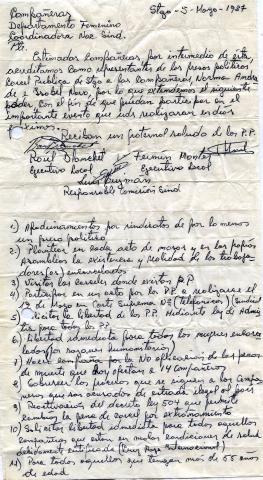 Compañeras Stgo - 5 - Mayo - 1987
Departamento Femenino
Coordinadora Nac. Sind.
Pte.
Estimadas Compañeras, por intermedio de esta,
acreditamos como representantes de los presos políticos
Carcel Publica de Stgo a las Compañeras, Norma
e Isabel para lo que extendemos el siguiente
poder con el fin de que puedan participar en el
importante evento que uds realizaran en dias
proximos.
Reciban un fraternal saludo de los P.P.
Raul Blanchet Fermin Montes
Ejecutivo Local Ejecutivo Local
Luis Guzman
Responsable Comision Sind
1) Apadrinamientos por sindicatos de por lo menos
un preso politico
2) Plantear en cada acto de mayo y en las propias
Asambleas la existencia y realidad de los trabaja-
dores (as) encarcelados
3) Visitas las carceles donde existan P.P
4) Participar en un acto por los P.P. a realizarse el
de Mayo en Corte Suprema
solicitar la libertad de los P.P. mediante ley de Amnis
tia para todos los PP
6) Libertad inmediata para todas las mujeres encarce
ladas por razones humanitarias
7) Hacer campaña por la No aplicacion de las penas
de muerte que hoy afectan a 14 compañeros
8) los procesos que se siguen a los compa
ñeros que son acusados de entrada ilegal al pais
9) Reactivacion del decreto ley 504 que permite
cambiar la pena de carcel por extrañamiento
10) Solicitar libertad inmediata para todos aquellos
compañeros que estan en malas condiciones de salud
debidamente certificada (Cruz Roja Internacional)
11) Para todos aquellos que tengan mas de 55 años
de edad